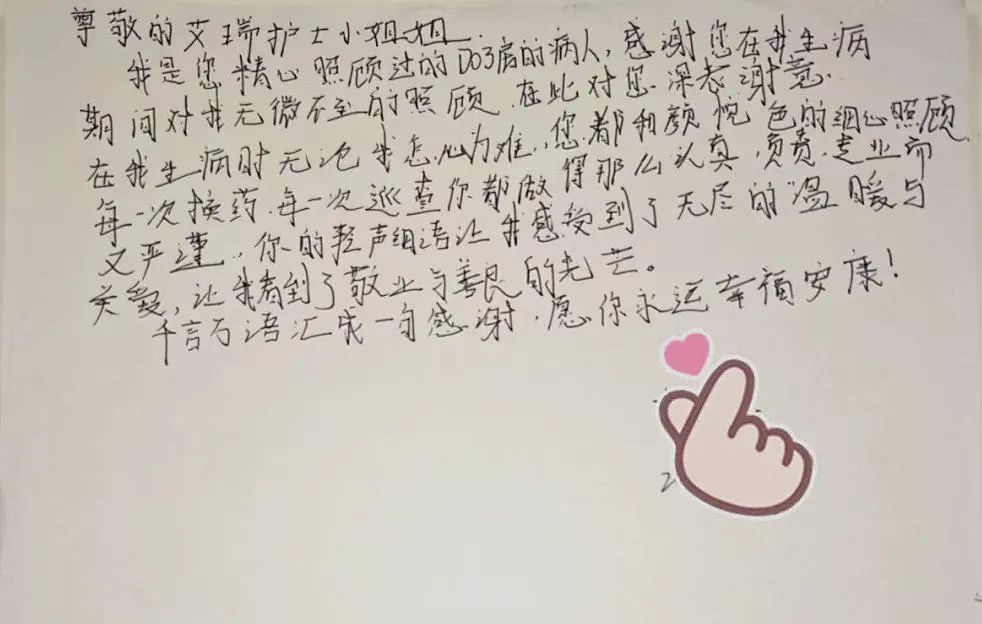 尊敬的艾瑞护士小姐姐.
我是您精心照顾过的D03房的病人,感谢您在我生病
期间对我无微不至的照顾.在此对您.深表谢意.
在我生病时无论我怎.心为难,.您.都和颜悦色的细心照顾.
每一次换药.每一次巡查你都做得那么认真.负责.专业而
又严谨,.你的轻声细语让我感受到了无尽的温暖与
关爱,让我看到了敬业与善良的光芒。
千言万语汇成一句感谢.愿你永远幸福安康!
2